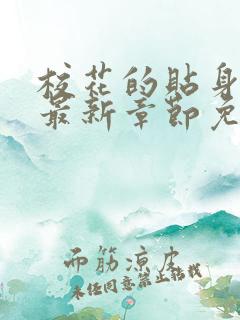 校花的貼身
最新章節免
而筋涼皮
未经同意禁止转载